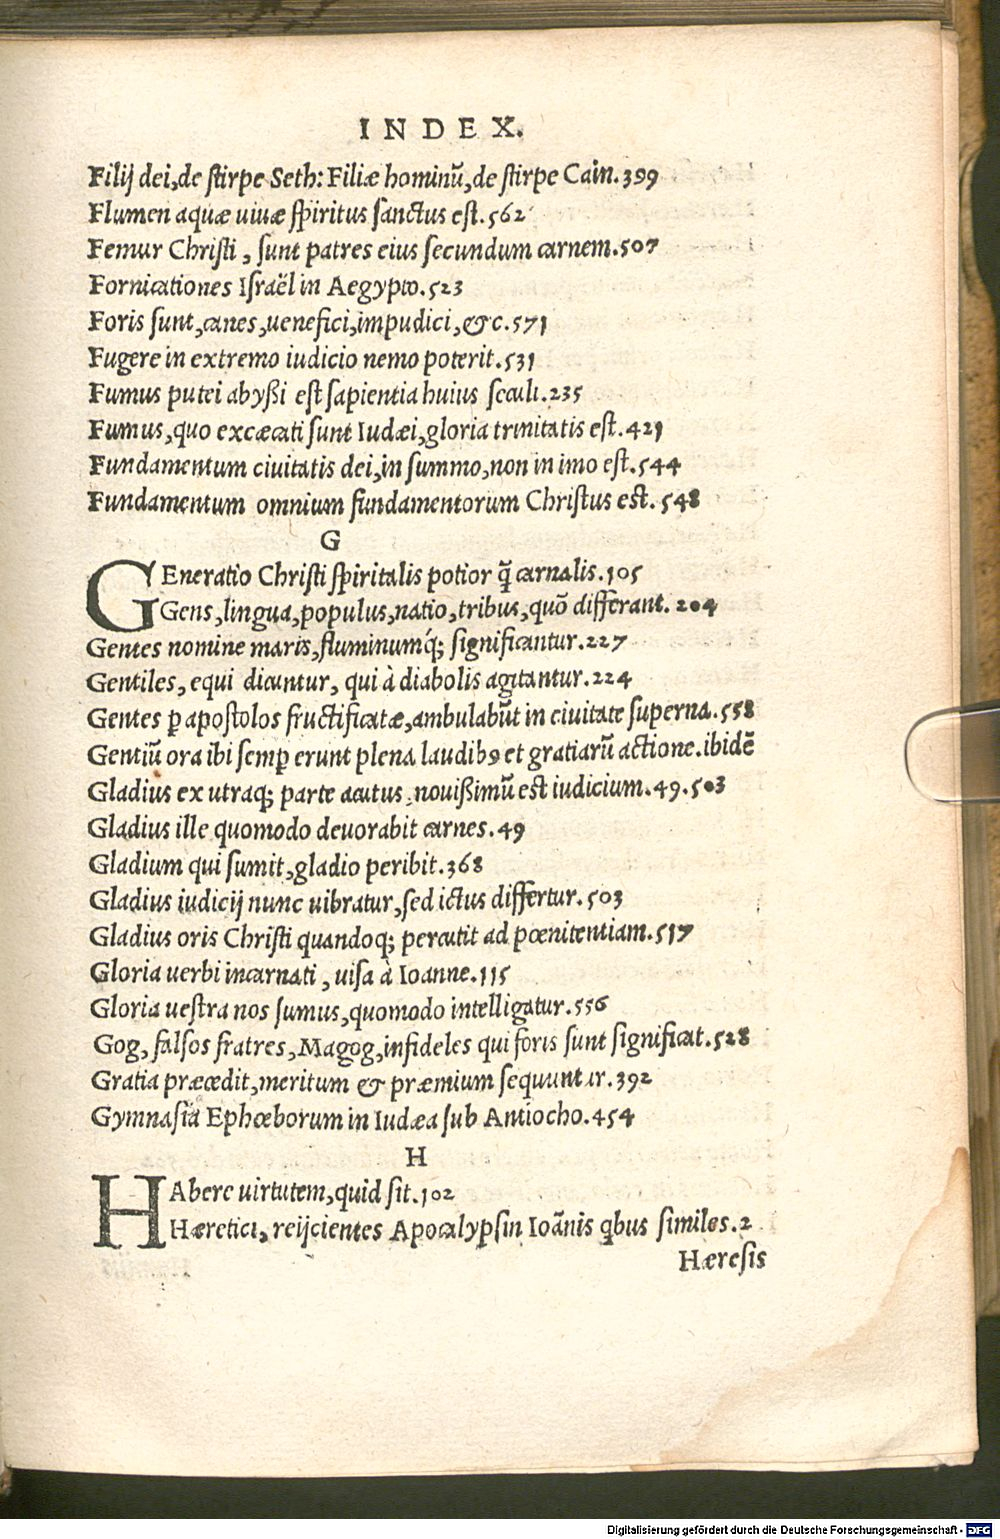 INDEX.
Filij dei, de stirpe Seth: Filiæ hominū, de stirpe Cain. 399
Flumen aquæ uiuæ spiritus sanctus est. 562
Femur Christi, sunt patres eius secundum carnem. 507
Fornicationes Israël in Aegypto. 523
Foris sunt, canes, uenefici, impudici, &c. 571
Fugere in extremo iudicio nemo poterit. 531
Fumus putei abyßi est sapientia huius seculi. 235
Fumus, quo excæcati sunt Iudæi, gloria trinitatis est. 421
Fundamentum ciuitatis dei, in summo, non in imo est. 544
Fundamentum omnium fundamentorum Christus est. 548
G
GEneratio Christi spiritalis potior q̄ carnalis. 105
Gens, lingua, populus, natio, tribus, quō differant. 204
Gentes nomine maris, fluminumq́; significantur. 227
Gentiles, equi dicuntur, qui à diabolis agitantur. 224
Gentes ꝑ apostolos fructificatæ, ambulabūt in ciuitate superna. 558
Gentiū ora ibi semꝑ erunt plena laudibꝰ et gratiarū actione. ibidē
Gladius ex utraq; parte acutus, nouißimū est iudicium. 49. 503
Gladius ille quomodo deuorabit carnes. 49
Gladium qui sumit, gladio peribit. 368
Gladius iudicij nunc uibratur, sed ictus differtur. 503
Gladius oris Christi quandoq; percutit ad pœnitentiam. 517
Gloria uerbi incarnati, uisa à Ioanne. 115
Gloria uestra nos sumus, quomodo intelligatur. 556
Gog, falsos fratres, Magog, infideles qui foris sunt significat. 528
Gratia præcedit, meritum & præmium sequuntur. 392
Gymnasia Ephœborum in Iudæa sub Antiocho. 454
H
HAbere uirtutem, quid sit. 102
Hæretici, reijcientes Apocalypsin Ioānis qbus similes. 2
Hæresis
Digitalisierung gefördert durch die Deutsche Forschungsgemeinschaft - DFG